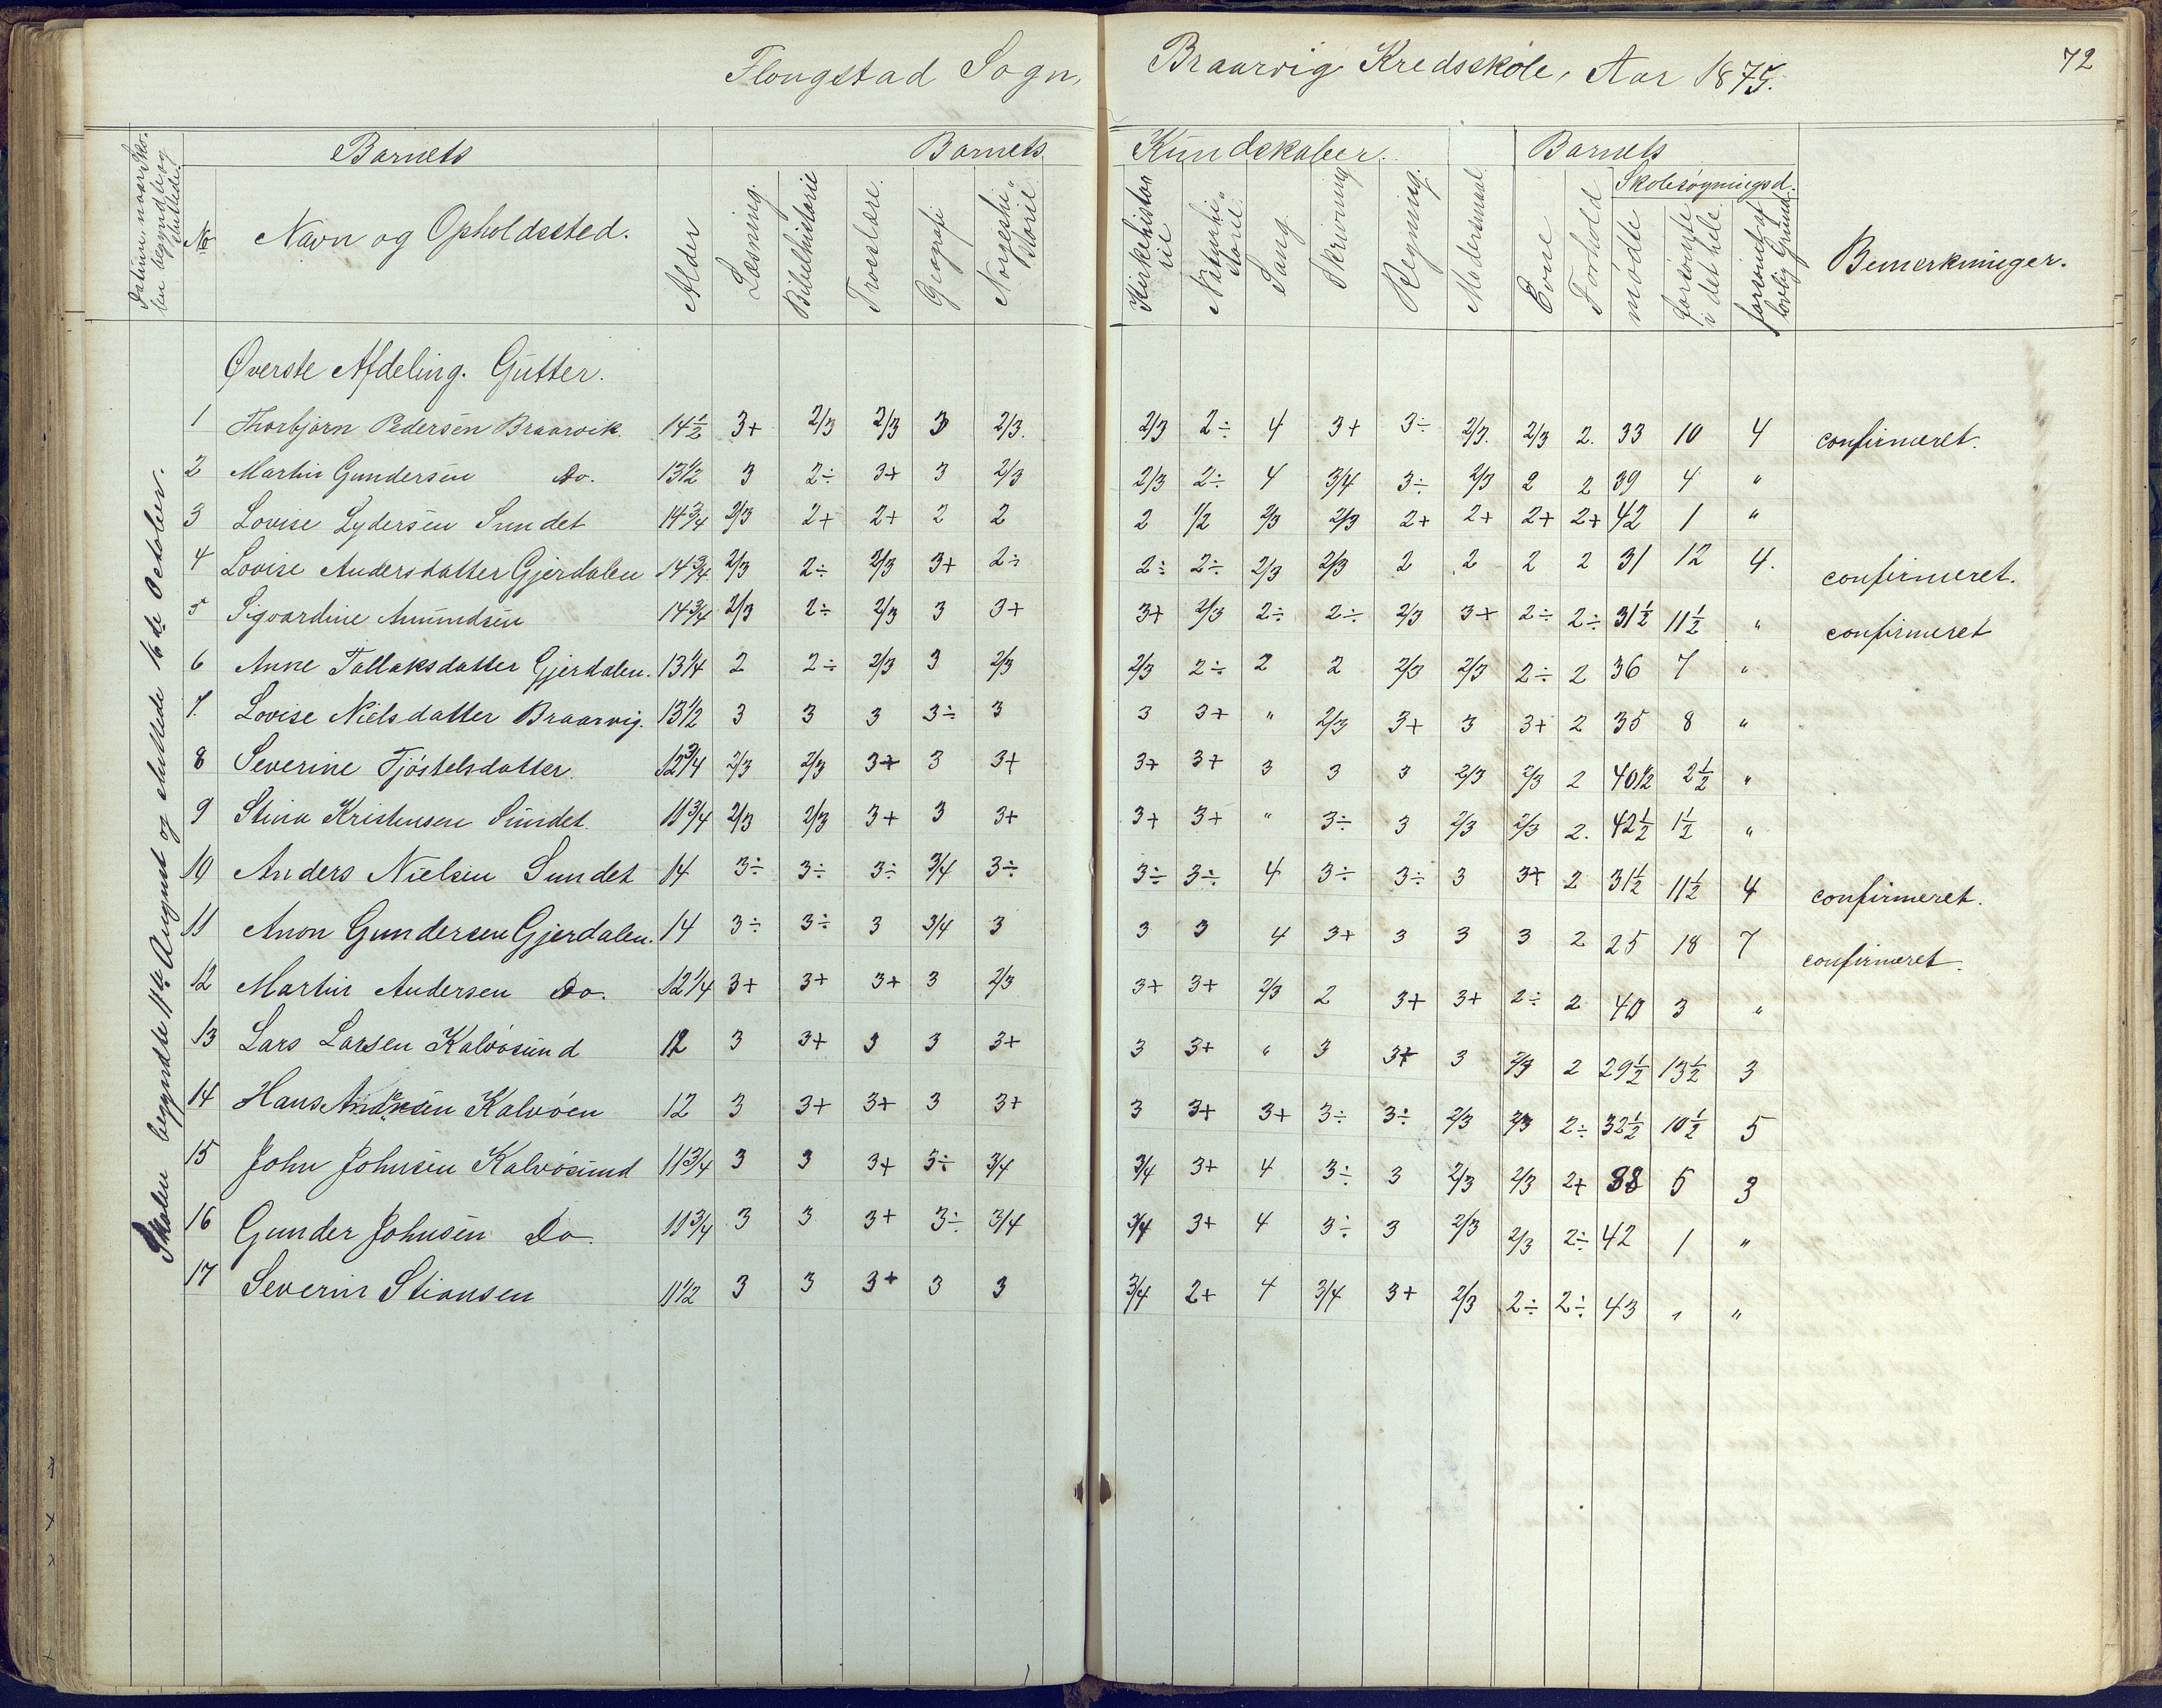 Flougstad Sogn, Braarvig Kredsskole, Aar 1875.
72
Datum, naar Skolen begyndte og sluttede.
No
Barnets
Navn og Opholdssted.
Alder
Barnets Kundskaber.
Læsning.
Bibelhistorie
Troeslære.
Geografi
Norgeshistorie
Kirkehistorie
Naturhistorie
Sang
Skrivning
Regning.
Modersmaal
Barnets
Evne
Forhold
Skolesøgningsd.
mødte
forsømte i det hele
forsømt af lovlig Grund
Bemerkninger.
Skolen begyndte 11te August og sluttede 16de October.
Øverste Afdeling. Gutter.
1 Thorbjørn Pedersen Braarvik. 14½ 3+ 2/3 2/3 3 2/3. 2/3 2÷ 4 3+ 3÷ 2/3. 2/3 2. 33 10 4 confirmeret.
2 Martin Gundersen Do. 13½ 3 2÷ 3+ 3 2/3 2/3 2÷ 4 3/4 3÷ 2/3 2 2 39 4 "
3 Lovise Lydersen Sundet 14¾ 2/3 2+ 2+ 2 2 2 1/2 2/3 2/3 2+ 2+ 2+ 2+ 42 1 "
4 Lovise Andersdatter Gjerdalen 14¾ 2/3 2÷ 2/3 3+ 2÷ 2÷ 2÷ 2/3 2/3 2 2 2 2 31 12 4. confirmeret.
5 Sigvardine Amundsen 14¾ 2/3 2÷ 2/3 3 3+ 3+ 2/3 2÷ 2÷ 2/3 3+ 2÷ 2÷ 31½ 11½ " confirmeret
6 Anne Tallaksdatter Gjerdalen. 13¼ 2 2÷ 2/3 3 2/3 2/3 2÷ 2 2 2/3 2/3 2÷ 2 36 7 "
7. Lovise Nielsdatter Braarvig. 13½ 3 3 3 3÷ 3 3 3+ " 2/3 3+ 3 3+ 2 35 8 "
8 Severine Tjöstelsdatter 12¾ 2/3 2/3 3+ 3 3+ 3+ 3+ 3 3 3 2/3 2/3 2 40½ 2½ "
9 Stina Kristensen Sundet. 11¾ 2/3 2/3 3+ 3 3+ 3+ 3+ " 3÷ 3 2/3 2/3 2. 42½ 1½ "
10 Anders Nielsen Sundet 14 3÷ 3÷ 3÷ 3/4 3÷ 3÷ 3÷ 4 3÷ 3÷ 3 3+ 2 31½ 11½ 4 confirmeret.
11 Anon Gundersen Gjerdalen. 14 3÷ 3÷ 3 3/4 3 3 3 4 3+ 3 3 3 2 25 18 7 confirmeret.
12 Martin Andersen Do. 12¼ 3+ 3+ 3+ 3 2/3 3+ 3+ 2/3 2 3+ 3+ 2÷ 2 40 3 "
13 Lars Larsen Kalvøsund 12 3 3+ 3 3 3+ 3 3+ " 3 3+ 3 2/3 2 29½ 13½ 3
14 Hans Andersen Kalvøen 12 3 3+ 3+ 3 3+ 3 3+ 3+ 3÷ 3÷ 2/3 2/3 2÷ 32½ 10½ 5
15 John Johnsen Kalvøsund 11¾ 3 3 3+ 3÷ 3/4 3/4 3+ 4 3÷ 3 2/3 2/3 2+ 38 5 3
16 Gunder Johnsen Do. 11¾ 3 3 3+ 3÷ 3/4 3/4 3+ 4 3÷ 3 2/3 2/3 2÷ 42 1 "
17 Severin Stiansen 11½ 3 3 3+ 3 3 3/4 2+ 4 3/4 3+ 2/3 2÷ 2÷ 43 " "